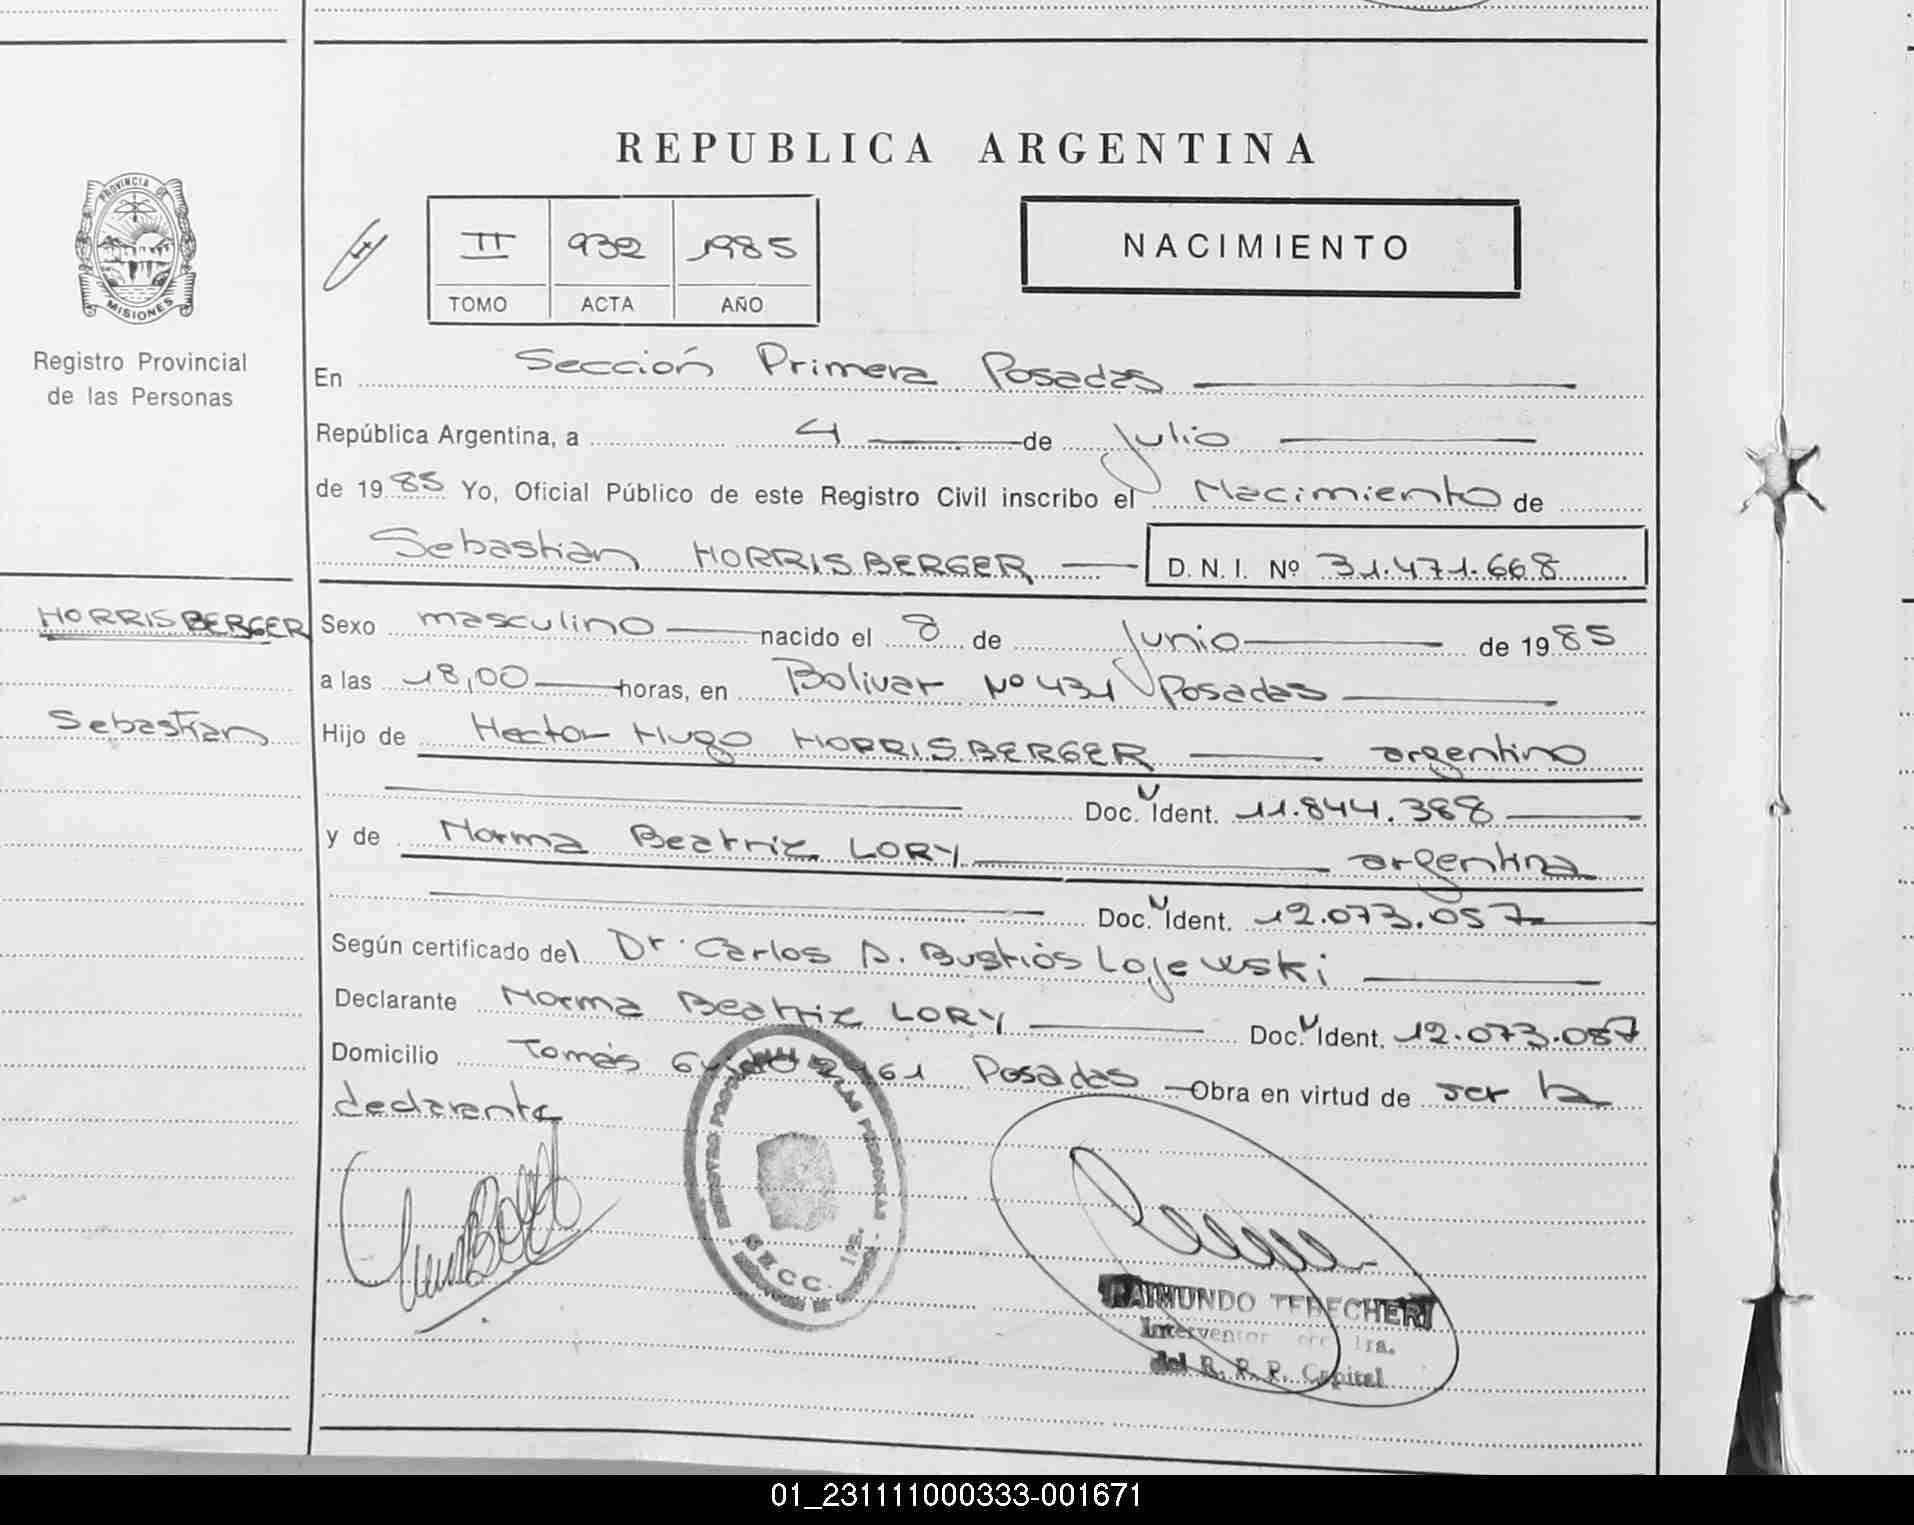 REPUBLICA ARGENTINA
PROVINCIA DE
MISIONES
Registro Provincial
de las Personas
II 932 1985
TOMO ACTA AÑO
NACIMIENTO
En Sección Primera Posadas
República Argentina, a 4 de Julio
de 1985 Yo, Oficial Público de este Registro Civil inscribo el Nacimiento de
Sebastian HORRISBERGER D.N.I. Nº 31.471.668
HORRISBERGER
Sebastian
Sexo masculino nacido el 8 de Junio de 1985
a las 18,00 horas, en Bolivar Nº 431 Posadas
Hijo de Hector Hugo HORRISBERGER argentino
Doc. Ident. 11.844.388
y de Norma Beatriz LORY argentina
Doc. Ident. 12.073.057
Según certificado del Dr. Carlos A. Bustiós Lojewski
Declarante Norma Beatriz LORY Doc. Ident. 12.073.057
Domicilio Tomás Guido 2161 Posadas Obra en virtud de ser la
declarante
REGISTRO DE LAS PERSONAS
SECC. 1ra.
RAIMUNDO TEBECHERI
Interventor 1ra.
del R. R. P. Capital
01_231111000333-001671